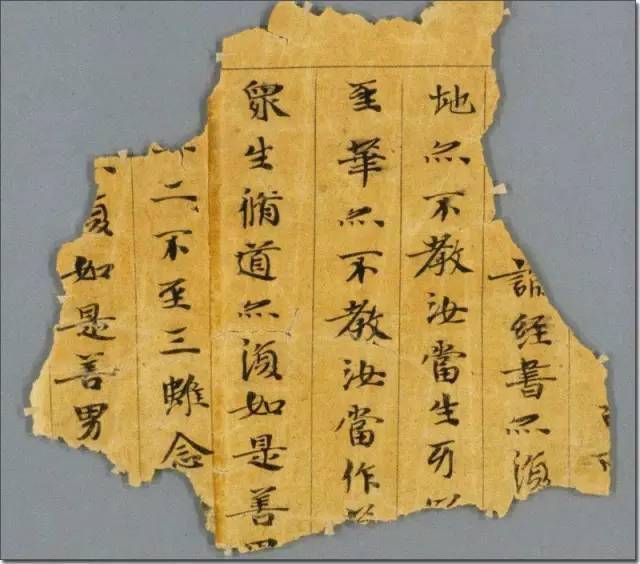 誦經書亦復
地亦不教汝當生牙
至華亦不教汝當作
眾生脩道亦復如是善男
二不至三雖念
復如是善男